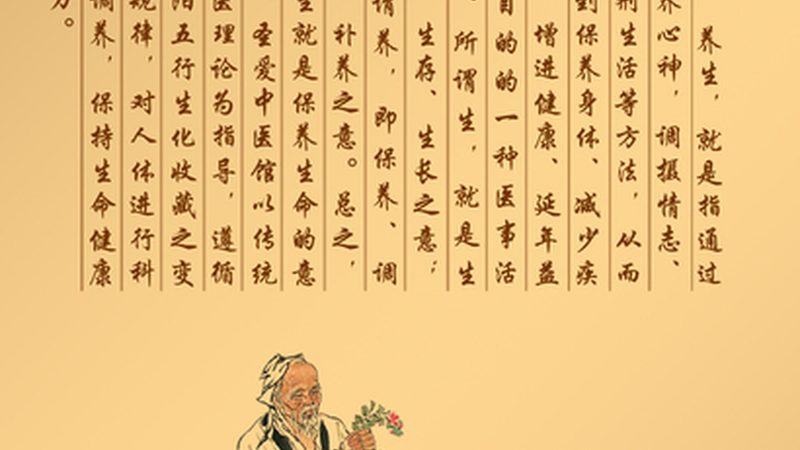 养生，就是指通过
养心神，调摄情志、
生活等方法，从而
到保养身体、减少疾
增进健康、延年益
目的的一种医事活
。所谓生，就是生
生存、生长之意；
谓养，即保养、调
补养之意。总之，
生就是保养生命的意
圣爱中医馆以传统
医理论为指导，遵循
阳五行生化收藏之变
规律，对人体进行科
调养，保持生命健康
。